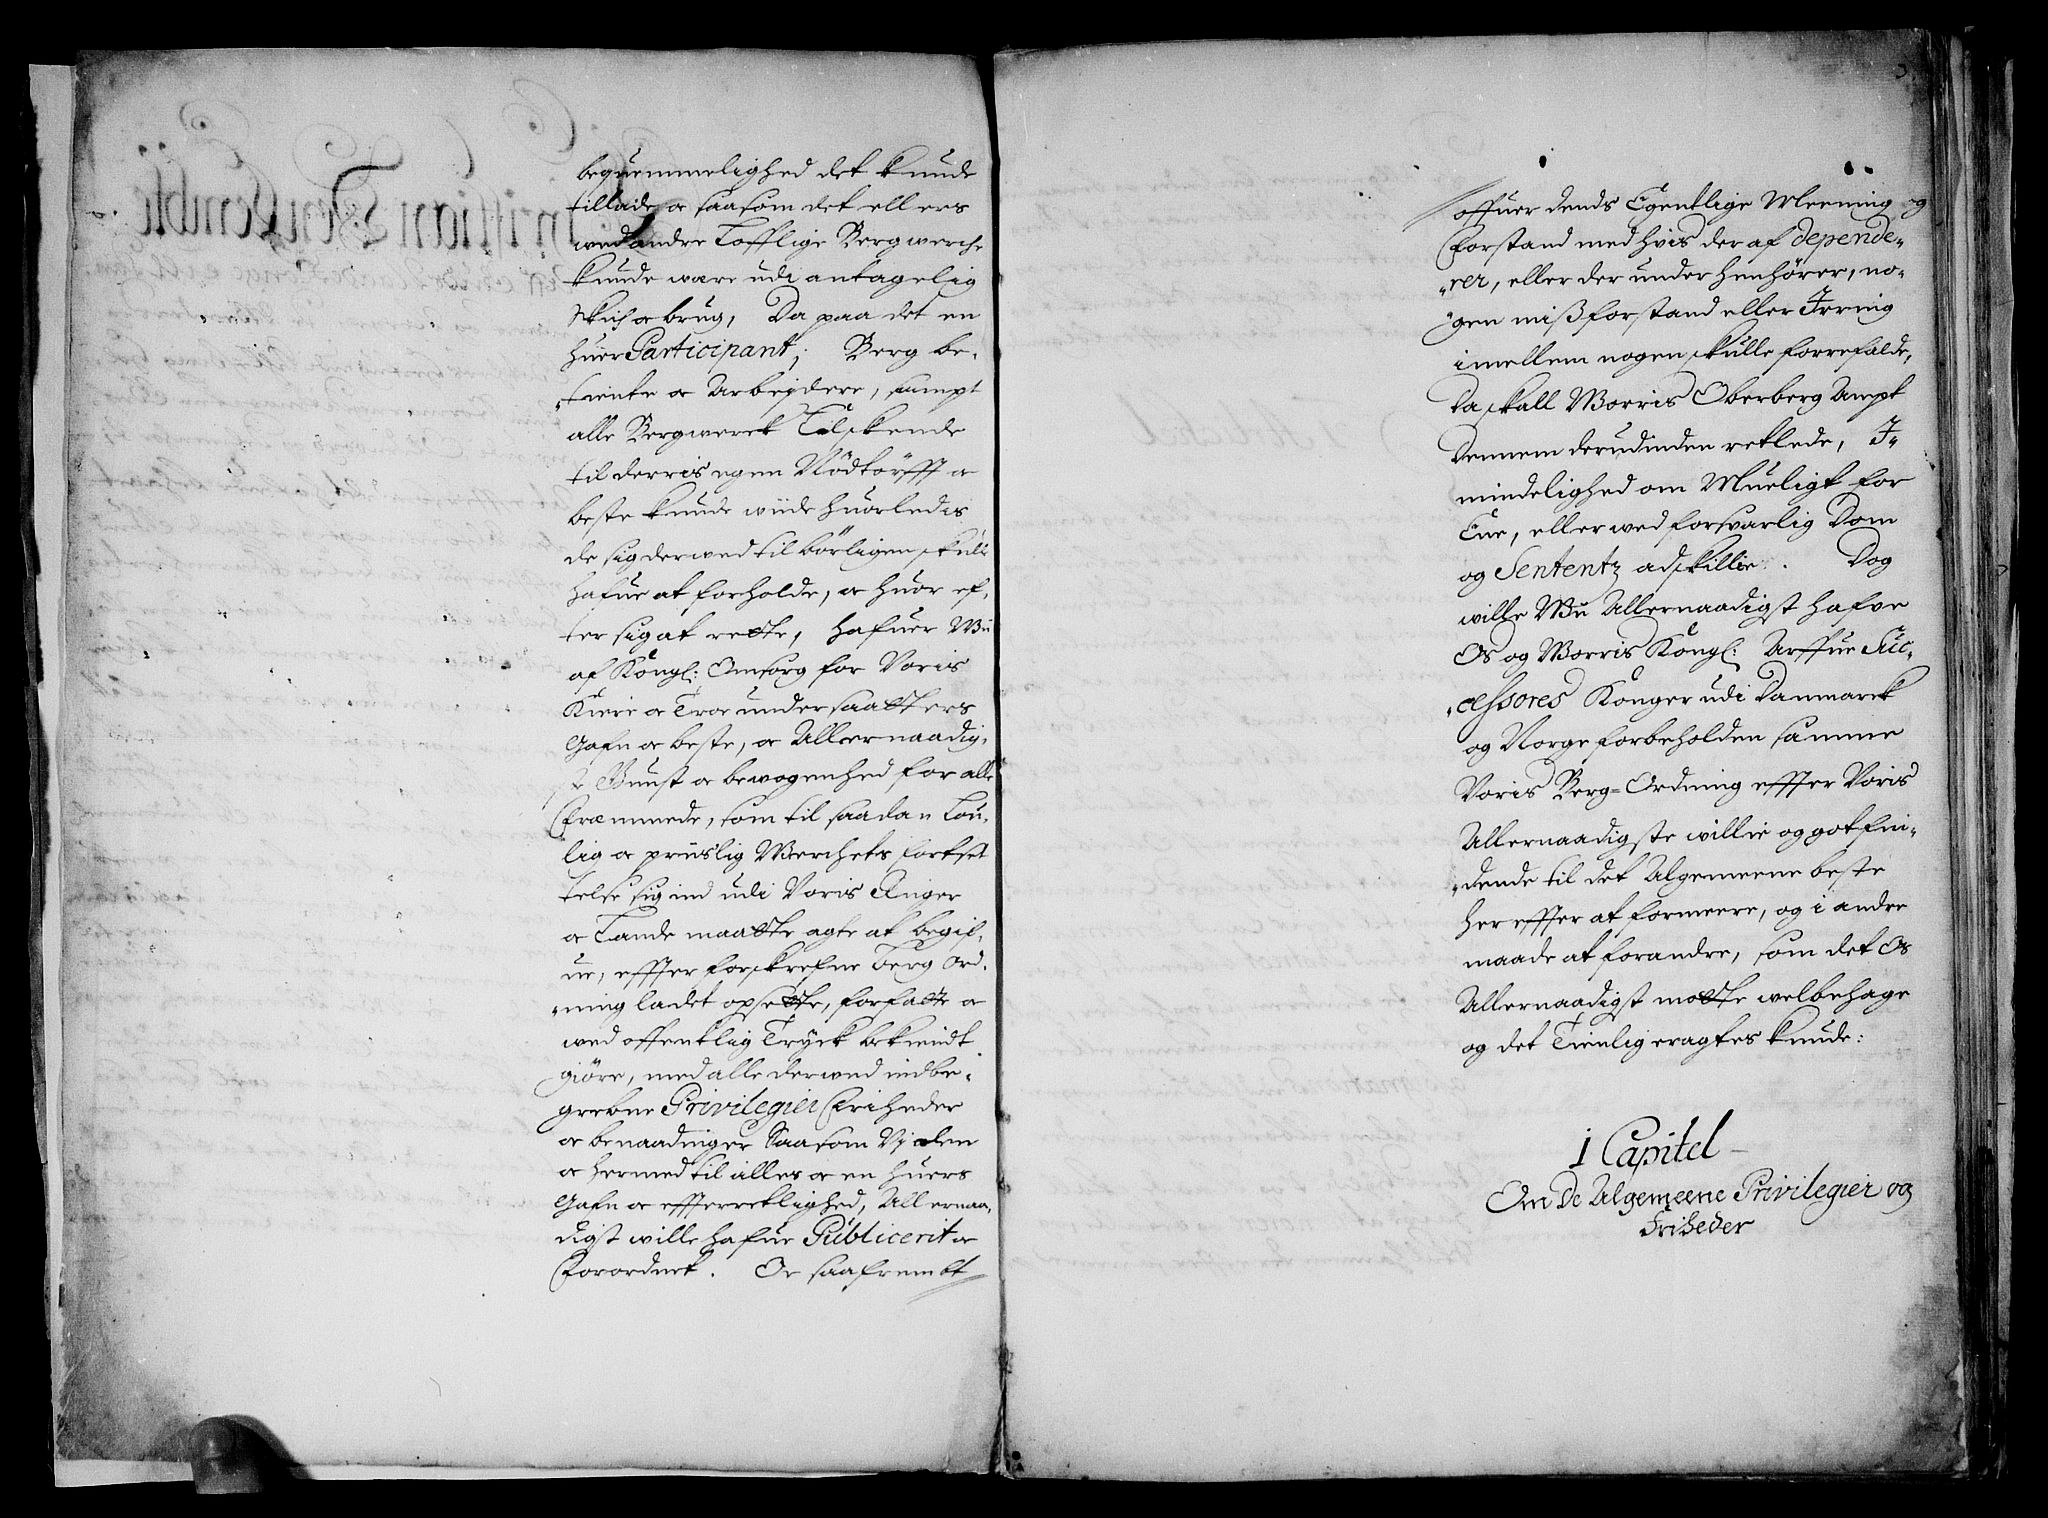 bequemmelighed det kunde
tillade oc saasom det ellers
wed andre Lofflige Bergwerch
kunde være udi antagelig
skich oc brug, Da paa det en
huer Participant, Berg be-
tiente oc Arbejdere, sampt
alle Bergwerck Elskende
til derris egen Nödtörfft oc
beste kunde wiide huorledis
de sig derwed tilbörligen skulle
hafue at forholde, oc huor ef-
ter sig at rette, hafuer Wii
af Kongl: Omsorg for Voris
Kiere oc Troe undersaatters
Gafn oc beste, oc Allernaadig-
ste Gunst oc bewogenhed, for alle
fræmmede, som til saadan Lou-
lig oc priislig Werchets fortset
telse sig ind udi Voris Riger
oc Lande maatte agte at begif-
ue, effter forskrefne Berg Ord-
ning ladet opsette, forfatte oc
wed offentlig Tryck bekiendt
giöre, med alle derwed indbe-
grebne Privilegier friheder
oc benaadinger Saasom Vj den
oc hermed til alles oc en huers
Gafn oc effterretlighed, Allernaa-
digst wille hafue Publicerit oc
forordnet. Oc saafrembt
offuer dends Egentlige Meening og
forstand med hvis der af depende-
rer, eller der under henhörer, no-
gen mißforstand eller Irring
imellem nogen skulle forrefalde,
Da skall Worris Oberberg Ampt
Dennem derudinden retlede, I
mindelighed om Mueligt for
Ene, eller wed forsvarlig Dom
og Sententz adskillie. Dog
wille Wii Allernaadigst hafve
Os og Worris Kongl: Arffue Suc-
cessores Konger udi Danmarck
og Norge forbeholden samme
Voris Berg-Ordning effter Voris
Allernaadigste willie og gotfin-
dende til det Algemeene beste
her effter at formeere, og i andre
maade at forandre, som det Os
Allernaadigst motte welbehage
og det Tienlig eragtes kunde:
1 Capitel
Om De Algemeene Privilegier og
Friheder